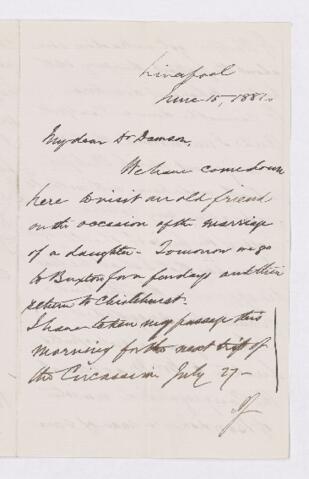 Liverpool
June 15, 1881.
My dear Dr Dawson,
We have come down
here to visit an old friend
on the occasion of the marriage
of a daughter - Tomorrow we go
to Buxton for a few days and then
return to Chislehurst.
I have taken my passage this
morning for the next trip of
the Circassian July 27 -